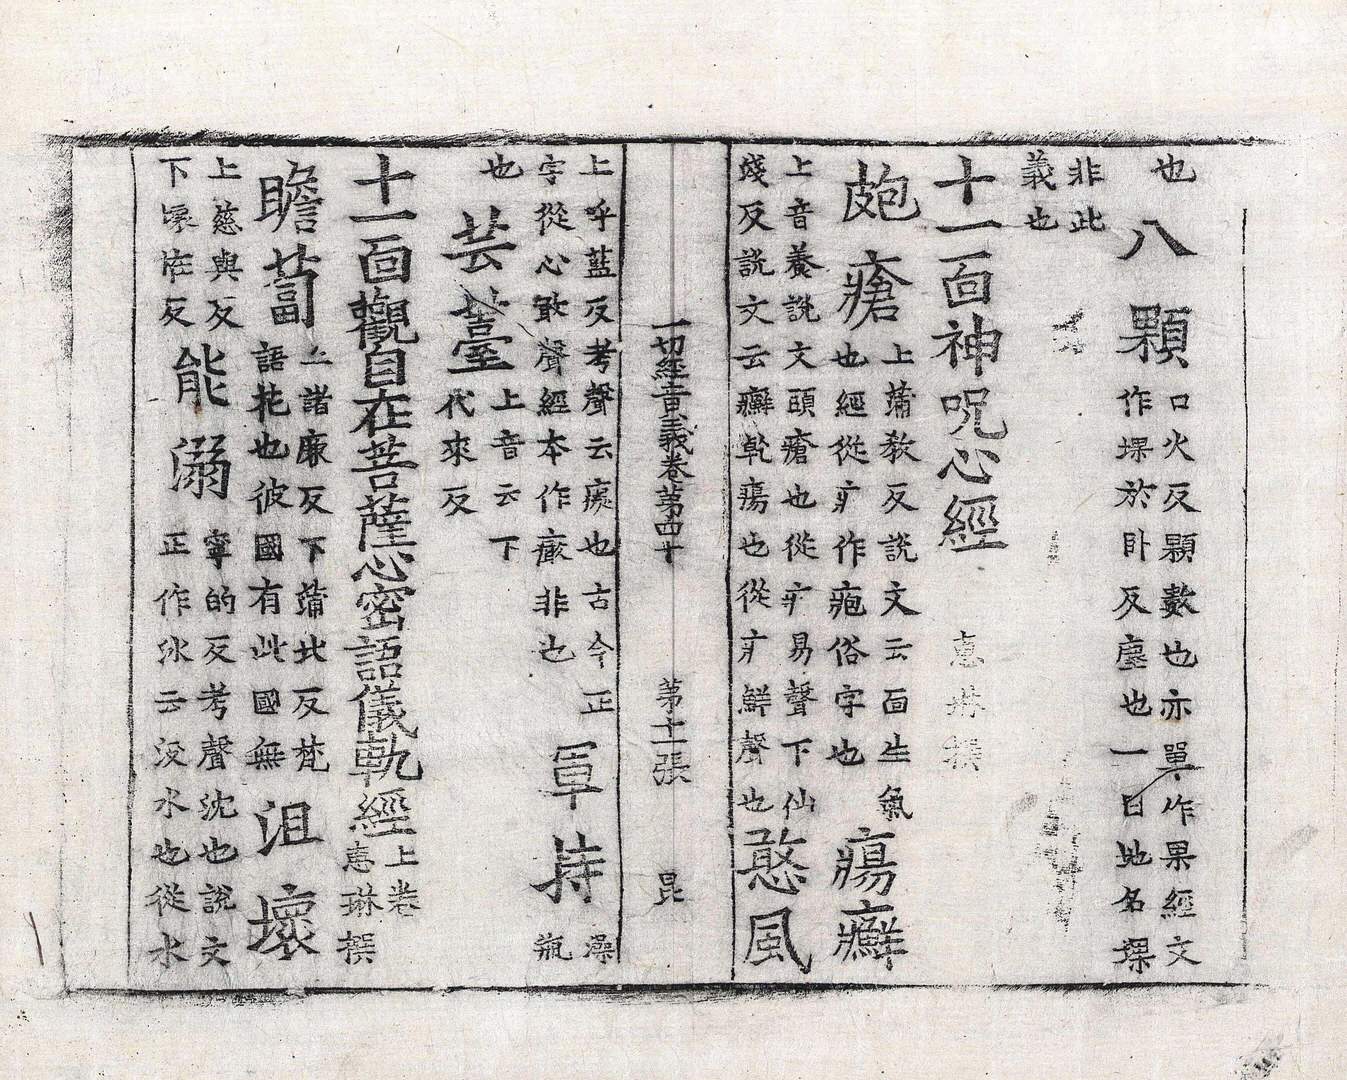 也八顆口火反顆數也亦單作果經文
作堁於卧反塵也一曰地名堔
非此
義也
十一面神呪心經 惠琳撰
皰瘡上蒲教反說文云面生氣
也經從疒作疱俗字也
瘍癬
上音養說文頭瘡也從疒昜聲下仙
淺反說文云癬乾瘍也從疒鮮聲也
憨風
一切經音義卷第四十 第十一張 昆
上呼藍反考聲云癡也古今正
字從心敢聲經本作㽉非也
軍持
澡
瓶
也芸薹上音云下
代來反
十一面觀自在菩薩心密語儀軌經上卷
惠琳撰
瞻蔔上諸廉反下蒲北反梵
語花也彼國有此國無
沮壞
上慈與反
下懷恠反
能溺寧的反考聲沈也說文
正作㲻云沒水也從水